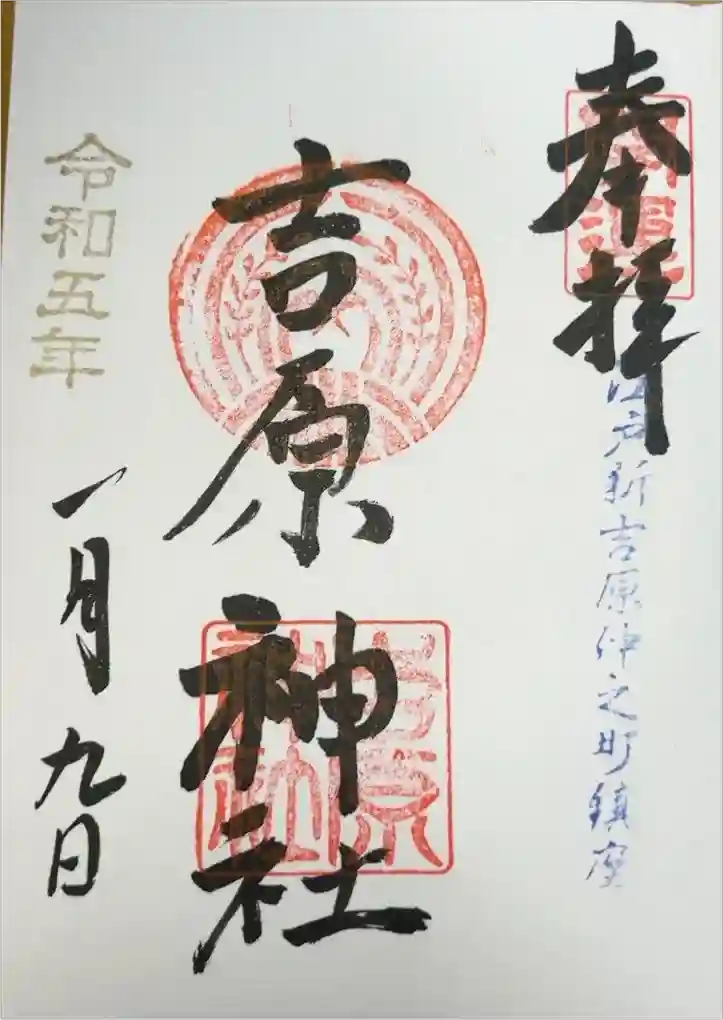 奉拝
江戸新吉原仲之町鎮座
吉原神社
吉原神社
令和五年
一月九日